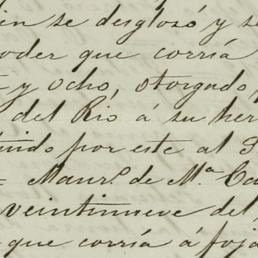 en se desglosó y se
oder que corría
y ocho, otorgado,
del Rio á su her
uido por este al
Maur.º de M.ª Ca
veintinueve del
que corría á foja